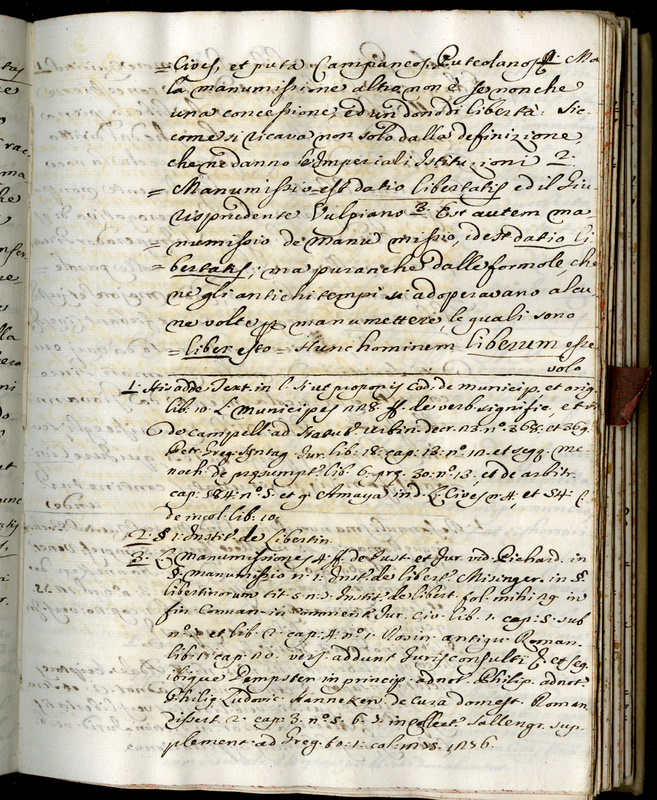 = Cives, et puta Campaneos, Puteolanos 1: Ma
la manumissione altro non è, se non che
una concessione, ed un dono di libertà: Sic-
come si ricava non solo dalla definizione,
che ne danno le Imperiali Istituzioni 2:
= Manumissio est datio libertatis ed il Giu
risprudente Vulpiano 3: Est autem ma
= numissio de manu missio, idest datio li
= bertatis; ma pur anche dalle formole, che
ne gli antichi tempi si adoperavano alcu
ne volte manumettere, le quali sono
= liber esto = Hunc hominem liberum esse
volo
1: His adde Text. in l. Si ut proponis Cod. de municip. et orig.
lib: 10. L. Municipes ff. de verb. signific., et
De campell: ad Statut. Urbin. decr. n: 368: et 369.
Petr. Greg. Syntag. Jur. lib: 18: cap: 12: n: et seqq. Me
noch: de præsumpt. lib: 6. præ. 30: n: 13. et de arbitr.
cap: 184: n: 5: et Amaya in d. L. Cives n: 4, et 54: C.
de incol: lib: 10.
2: § 1: Instit. de Libertin.
3: L. Manumissiones 4: ff. de Just. et Jur. vid. Pichard. in
§: manumissio n: 1: Inst. de libert. Misinger. in §.
libertinorum tit: 5: n: 2: Instit. de libert. fol. mihi 29 in
fin Connan: in Comment. Jur. Civ. lib. 1: cap: 5: sub
n: et lib: 2: cap: 4: n: 1: Rosin: antiqu. Roman.
lib: 1: cap: 20: vers: addunt Jurisconsulti & et seq.
ibique Dempster in princip. adnot. Philip. adnot
Philip Ludovic: Hanneken de Cura domest. Roman
Dissert. 2: cap: 3. n: 5. 6: in collect. Sallengr. sup-
plement. ad Greg. 1: col: